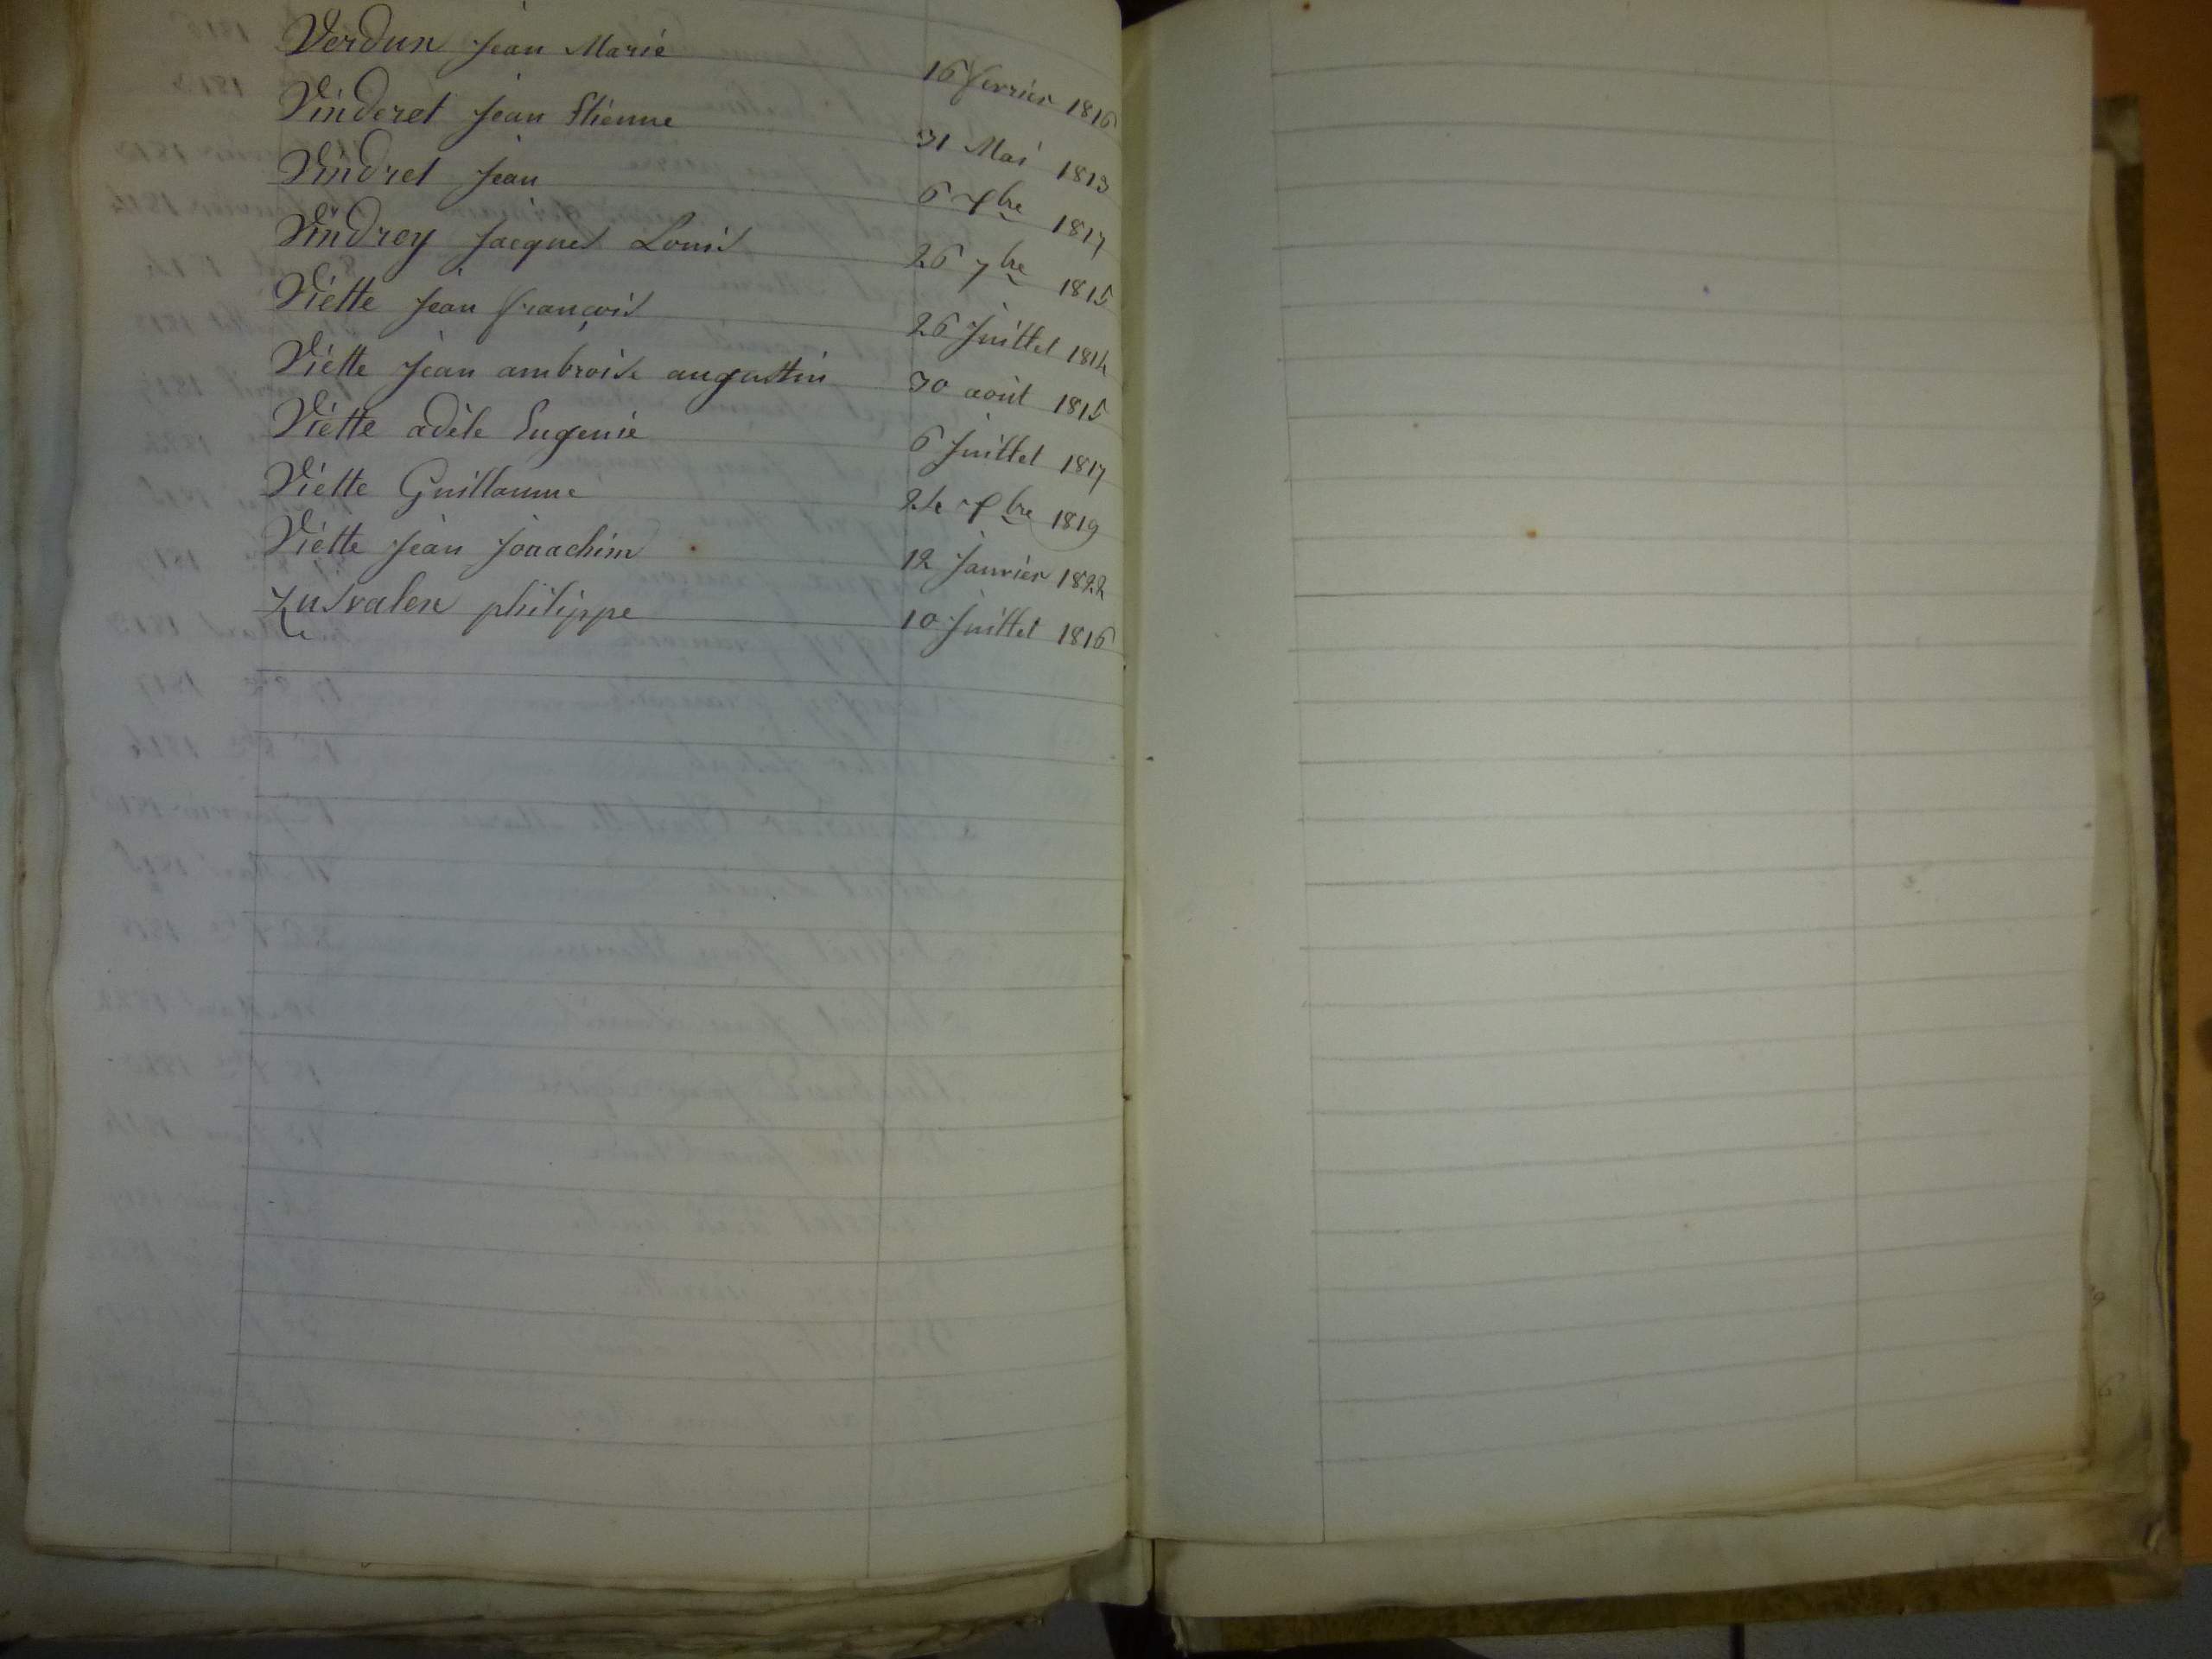 Verdun Jean Marie 16 fevrier 1816
Vinderet Jean Etienne 31 Mai 1813
Vindret Jean 6 Xbre 1817
Vindrey Jacques Louis 26 7bre 1815
Viette Jean françois 26 Juillet 1814
Viette Jean ambroise augustin 30 août 1815
Viette adèle Eugenie 6 Juillet 1817
Viette Guillaume 24 Xbre 1819
Viette Jean Jouachim 12 Janvier 1822
Zusvalen philippe 10 Juillet 1816